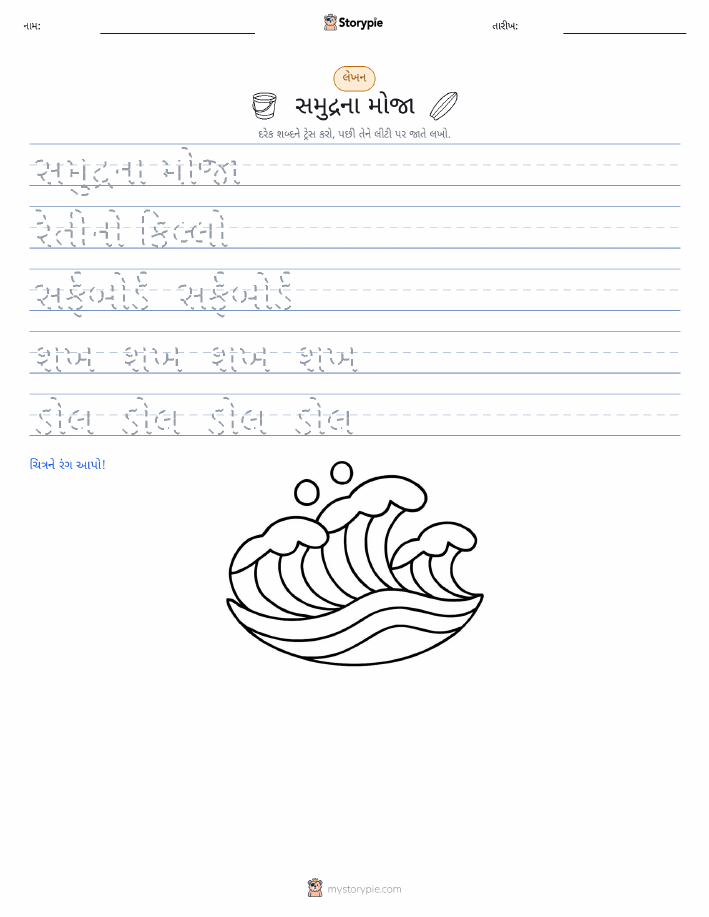 નામ:
Storypie
તારીખ:
લેખન
સમુદ્રના મોજા
દરેક શબ્દને ટ્રેસ કરો, પછી તેને લીટી પર જાતે લખો.
સમુદ્રના મોજા
રેતીનો કિલ્લો
સર્ફબોર્ડ સર્ફબોર્ડ
શંખ શંખ શંખ શંખ
ડોલ ડોલ ડોલ ડોલ
ચિત્રને રંગ આપો!
mystorypie.com